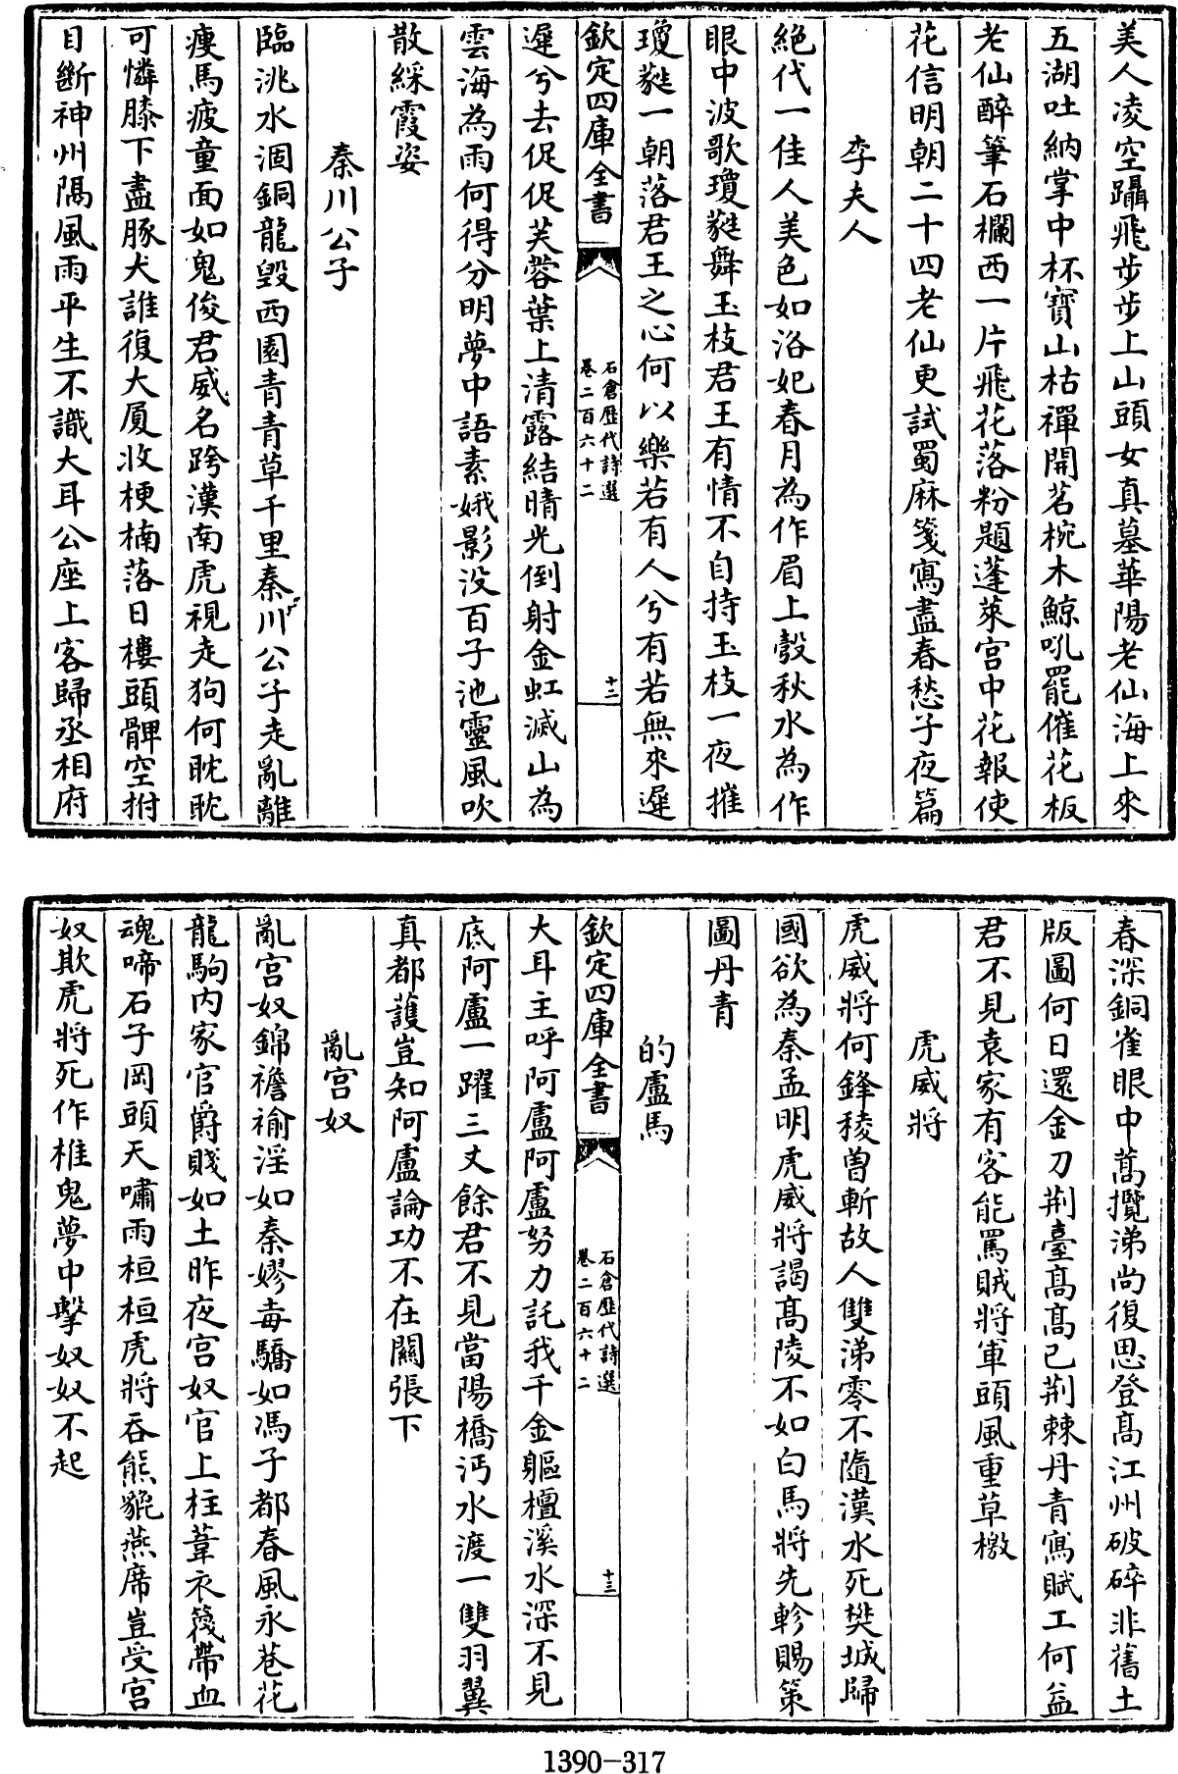 美人凌空躡飛步步上山頭女真墓華陽老仙海上來
五湖吐納掌中杯寶山枯禪開茗椀木鯨吼罷催花板
老仙醉筆石欄西一片飛花落粉題蓬萊宫中花報使
花信明朝二十四老仙更試蜀麻箋寫盡春愁子夜篇
李夫人
絶代一佳人美色如洛妃春月為作眉上彀秋水為作
眼中波歌瓊蕤舞玉枝君王有情不自持玉枝一夜摧
瓊蕤一朝落君王之心何以樂若有人兮有若無來遲
欽定四庫全書
石倉歷代詩選
卷二百六十二
十二
遲兮去促促芙蓉葉上清露結晴光倒射金虹滅山為
雲海為雨何得分明夢中語素娥影没百子池靈風吹
散綵霞姿
秦川公子
臨洮水涸銅龍毀西園青青草千里秦川公子走亂離
瘦馬疲童面如鬼俊君威名跨漢南虎視走狗何眈眈
可憐膝下盡豚犬誰復大厦收梗楠落日樓頭髀空拊
目斷神州隔風雨平生不識大耳公座上客歸丞相府
春深銅雀眼中蒿攬涕尚復思登高江州破碎非舊土
版圖何日還金刀荆臺髙髙已荆棘丹青寫賦工何益
君不見袁家有客能罵賊將軍頭風重草檄
虎威將
虎威將何鋒稜曽斬故人雙涕零不隨漢水死樊城歸
國欲為秦孟明虎威將謁髙陵不如白馬將先軫賜策
圖丹青
的盧馬
欽定四庫全書
石倉歷代詩選
卷二百六十二
十三
大耳主呼阿盧阿盧努力託我千金軀檀溪水深不見
底阿盧一躍三丈餘君不見當陽橋沔水渡一雙羽翼
真都護豈知阿盧論功不在關張下
亂宫奴
亂宫奴錦襜褕淫如秦嫪毒驕如馮子都春風永巷花
龍駒内家官爵賤如土昨夜宫奴官上柱葦衣篾帶血
魂啼石子岡頭天嘯雨桓桓虎將吞熊貔燕席豈受宫
奴欺虎將死作椎鬼夢中擊奴奴不起
1390-317